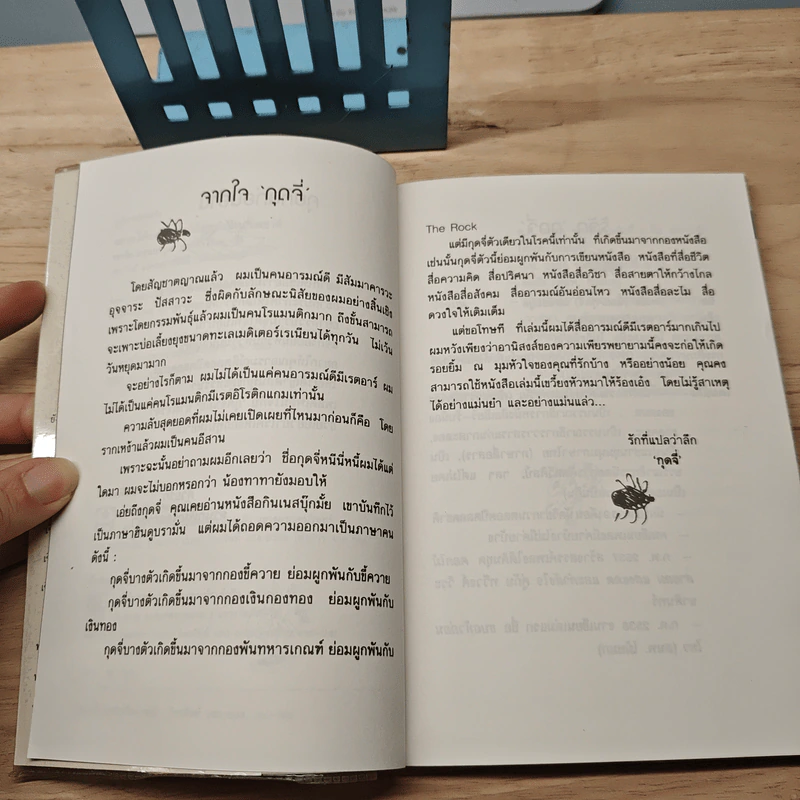 จากใจ 'กุดจี่'
โดยสัญชาตญาณแล้ว ผมเป็นคนอารมณ์ดี มีสัมมาคารวะ
อุจจาระ ปัสสาวะ ซึ่งผิดกับลักษณะนิสัยของผมอย่างสิ้นเชิง
เพราะโดยกรรมพันธุ์แล้วผมเป็นคนโรแมนติกมาก ถึงขั้นสามารถ
จะเพาะบ่อเลี้ยงยุงขนาดทะเลเมดิเตอร์เรเนียนได้ทุกวัน ไม่เว้น
วันหยุดมามาก
จะอย่างไรก็ตาม ผมไม่ได้เป็นแค่คนอารมณ์ดีมีเรตอาร์ ผม
ไม่ได้เป็นแค่คนโรแมนติกมีเรตอีโรติกแกมเท่านั้น
ความลับสุดยอดที่ผมไม่เคยเปิดเผยที่ไหนมาก่อนก็คือ โดย
รากเหง้าแล้วผมเป็นคนอีสาน
เพราะฉะนั้นอย่าถามผมอีกเลยว่า ชื่อกุดจี่หนีนี่หนี้ผมได้แต่
ใดมา ผมจะไม่บอกหรอกว่า น้องทาทายังมอบให้
เอ่ยถึงกุดจี่ คุณเคยอ่านหนังสือกินเนสบุ๊กมั้ย เขาบันทึกไว้
เป็นภาษาฮินดูบรามั่น แต่ผมได้ถอดความออกมาเป็นภาษาคน
ดังนี้ :
กุดจี่บางตัวเกิดขึ้นมาจากกองขี้ควาย ย่อมผูกพันกับขี้ควาย
กุดจี่บางตัวเกิดขึ้นมาจากกองเงินกองทอง ย่อมผูกพันกับ
เงินทอง
กุดจี่บางตัวเกิดขึ้นมาจากกองพันทหารเกณฑ์ ย่อมผูกพันกับ
The Rock
แต่มีกุดจี่ตัวเดียวในโรคนี้เท่านั้น ที่เกิดขึ้นมาจากกองหนังสือ
เช่นนั้นกุดจี่ตัวนี้ย่อมผูกพันกับการเขียนหนังสือ หนังสือที่สื่อชีวิต
สื่อความคิด สื่อปริศนา หนังสือสื่อวิชา สื่อสายตาให้กว้างไกล
หนังสือสื่อสังคม สื่ออารมณ์อันอ่อนไหว หนังสือสื่อละไม สื่อ
ดวงใจให้เติมเต็ม
แต่ขอโทษที ที่เล่มนี้ผมได้สื่ออารมณ์ดีมีเรตอาร์มากเกินไป
ผมหวังเพียงว่าอานิสงส์ของความเพียรพยายามนี้คงจะก่อให้เกิด
รอยยิ้ม ณ มุมหัวใจของคุณที่รักบ้าง หรืออย่างน้อย คุณคง
สามารถใช้หนังสือเล่มนี้เขวี้ยงหัวหมาให้ร้องเอ๋ง โดยไม่รู้สาเหตุ
ได้อย่างแม่นยำ และอย่างแม่นแล้ว...
รักที่แปลว่าลึก
'กุดจี่'